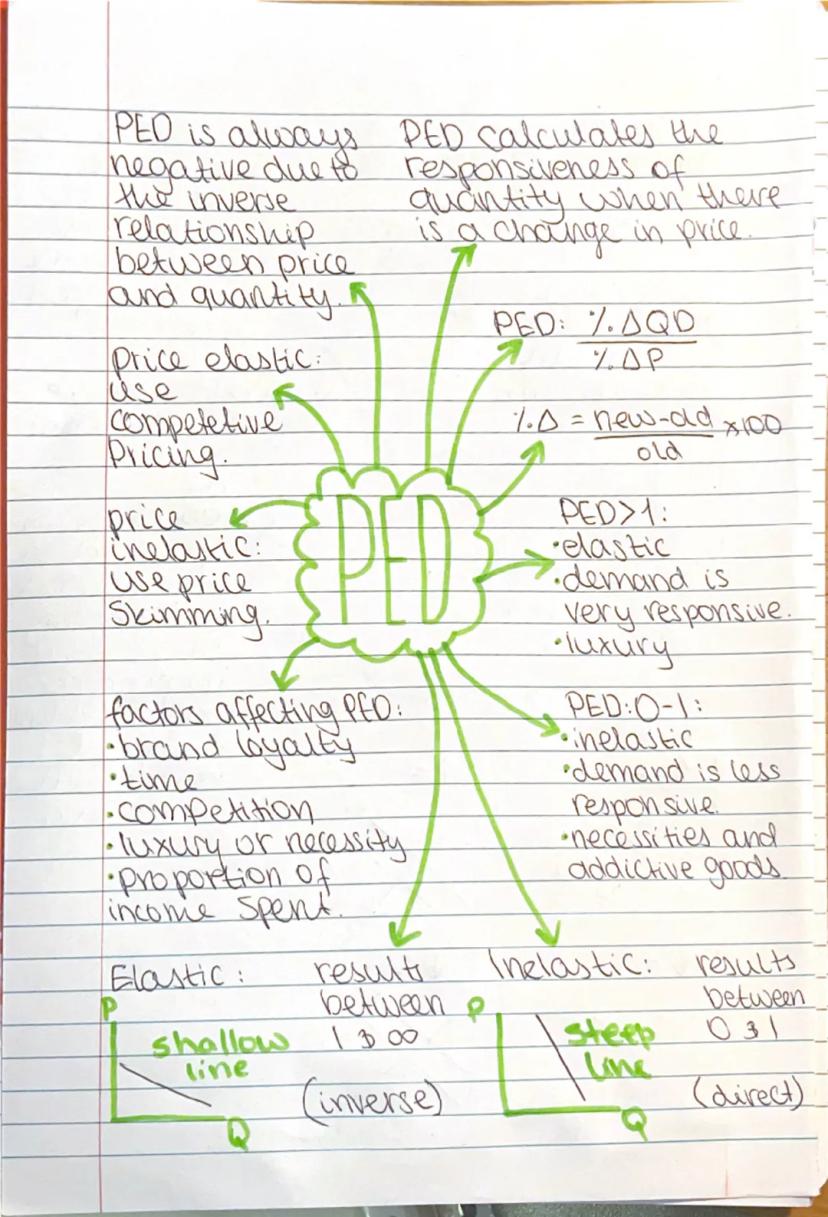 PED is always
negative due to
the inverse
relationship
between price
and quantity.
PED calculates the
responsiveness of
quantity when there
is a change in price.
PED: %ΔQD
%ΔP
%Δ = new-old ×100
old
price elastic:
use
competetive
Pricing.
price
inelastic:
use price
Skimming.
PED
PED>1:
•elastic
•demand is
very responsive.
•luxury
factors affecting PED:
•brand loyalty
•time
•competition
•luxury or necessity
•proportion of
income spent.
PED:0-1:
•inelastic
•demand is less
responsive.
•necessities and
addictive goods.
Elastic:
results
between
1 & ∞
(inverse)
P
shallow
line
Q
Inelastic:
results
between
0 & 1
(direct)
P
steep
line
Q